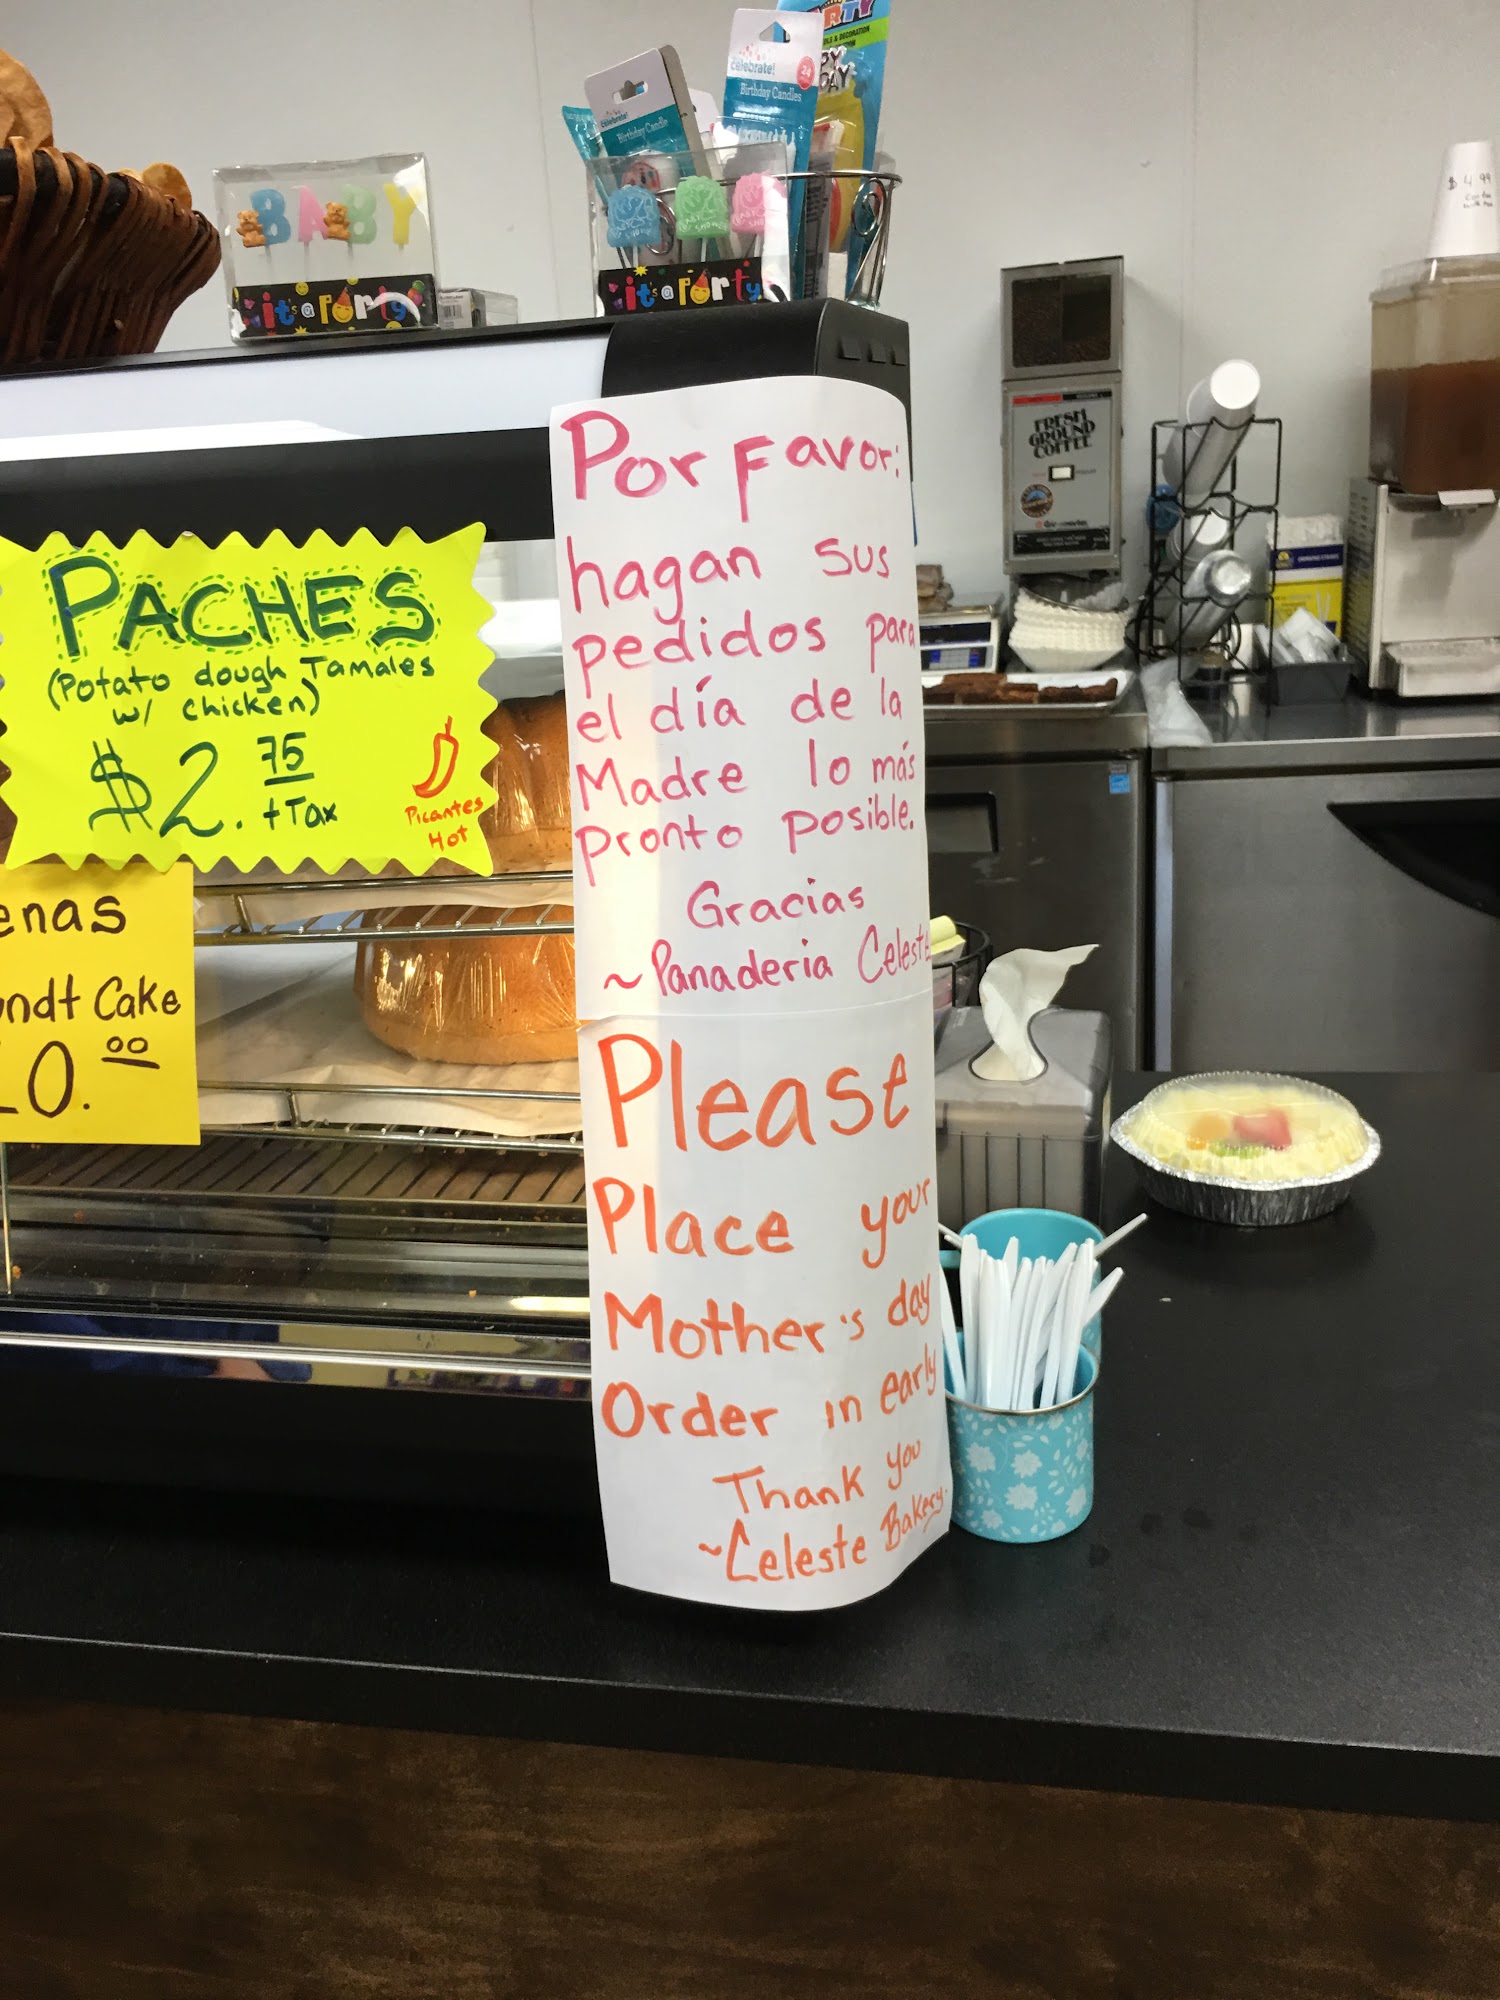 BABY
it's a Party
celebrate!
Birthday Candle
celebrate!
24
Birthday Candles
it's a Party
$4.99
FRESH
GROUND
COFFEE
PACHES
(Potato dough Tamales
w/ chicken)
$2.75
+Tax
Picantes
Hot
enas
ndt Cake
0.00
Por Favor:
hagan sus
pedidos para
el día de la
Madre lo más
pronto posible.
Gracias
~Panaderia Celeste
Please
Place your
Mother's day
Order in early
Thank you
~Celeste Bakery.